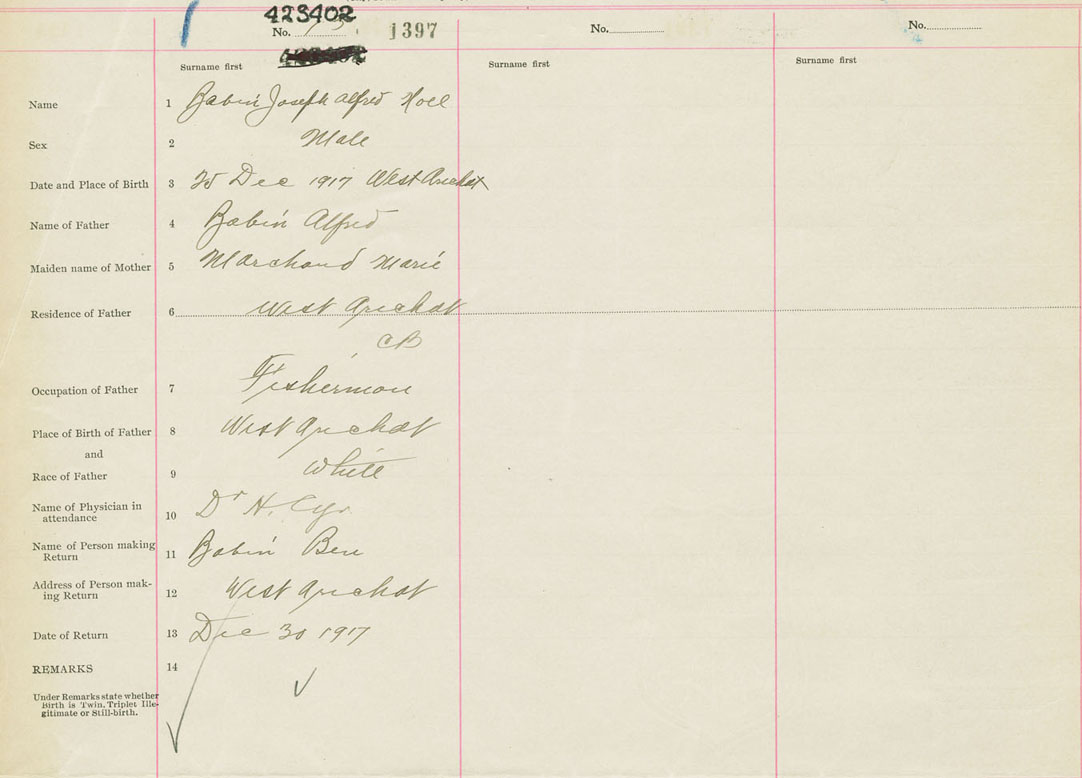 423402
No. 1397
No.
No.
Surname first
Surname first
Surname first
Name 1 Babin Joseph Alfred Noel
Sex 2 Male
Date and Place of Birth 3 25 Dec 1917 West Arichat
Name of Father 4 Babin Alfred
Maiden name of Mother 5 Marchand Marie
Residence of Father 6 West Arichat
CB
Occupation of Father 7 Fisherman
Place of Birth of Father 8 West Arichat
and
Race of Father 9 White
Name of Physician in
attendance 10 Dr N. Cyr
Name of Person making
Return 11 Babin Ben
Address of Person mak-
ing Return 12 West Arichat
Date of Return 13 Dec 30 1917
REMARKS 14
Under Remarks state whether
Birth is Twin. Triplet Ille-
gitimate or Still-birth.